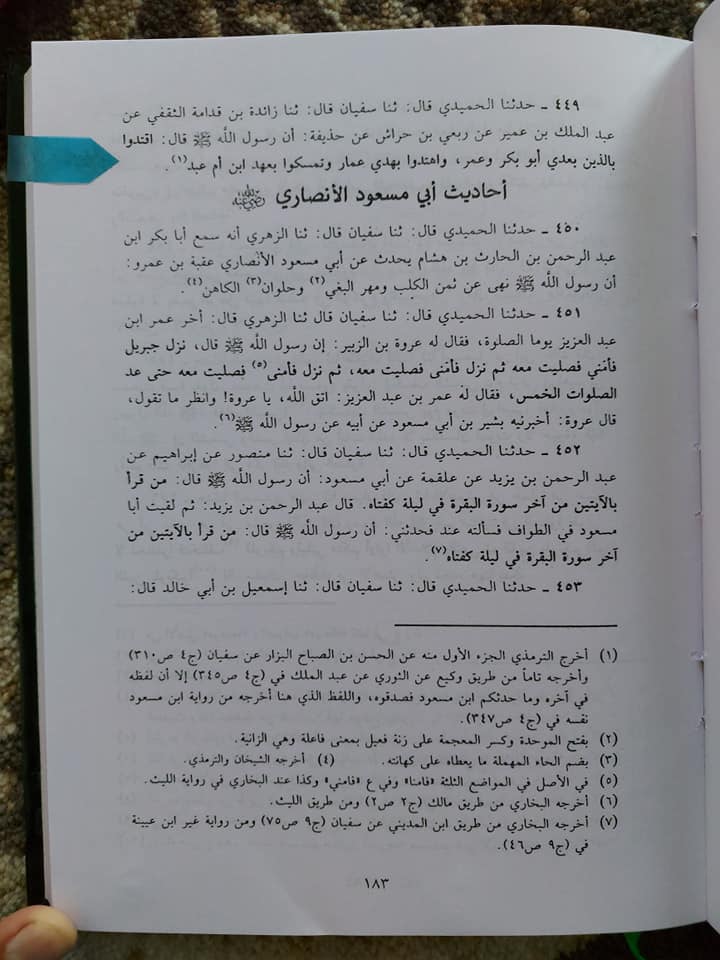 ٤٤٩ ـ حدثنا الحميدي قال: ثنا سفيان قال: ثنا زائدة بن قدامة الثقفي عن
عبد الملك بن عمير عن ربعي بن حراش عن حذيفة: أن رسول اللّه ﷺ قال: اقتدوا
بالذين بعدي أبو بكر وعمر، واهتدوا بهدي عمار وتمسكوا بعهد ابن أم عبد(١).
أحاديث أبي مسعود الأنصاري رضي الله عنه
٤٥٠ ـ حدثنا الحميدي قال: ثنا سفيان قال: ثنا الزهري أنه سمع أبا بكر ابن
عبد الرحمن بن الحارث بن هشام يحدث عن أبي مسعود الأنصاري عقبة بن عمرو:
أن رسول اللّه ﷺ نهى عن ثمن الكلب ومهر البغي(٢) وحلوان(٣) الكاهن(٤).
٤٥١ ـ حدثنا الحميدي قال: ثنا سفيان قال ثنا الزهري قال: أخر عمر ابن
عبد العزيز يوما الصلوة، فقال له عروة بن الزبير: إن رسول اللّه ﷺ قال، نزل جبريل
فأمّني فصليت معه ثم نزل فأمّنى فصليت معه، ثم نزل فأمنى(٥) فصليت معه حتى عد
الصلوات الخمس، فقال له عمر بن عبد العزيز: اتق اللّه، يا عروة! وانظر ما تقول،
قال عروة: أخبرنيه بشير بن أبي مسعود عن أبيه عن رسول اللّه ﷺ(٦).
٤٥٢ ـ حدثنا الحميدي قال: ثنا سفيان قال: ثنا منصور عن إبراهيم عن
عبد الرحمن بن يزيد عن علقمة عن أبي مسعود: أن رسول اللّه ﷺ قال: من قرأ
بالآيتين من آخر سورة البقرة في ليلة كفتاه. قال عبد الرحمن بن يزيد: ثم لقيت أبا
مسعود في الطواف فسألته عند فحدثني: أن رسول اللّه ﷺ قال: من قرأ بالآيتين من
آخر سورة البقرة في ليلة كفتاه(٧).
٤٥٣ ـ حدثنا الحميدي قال: ثنا سفيان قال: ثنا إسمعيل بن أبي خالد قال:
(١) أخرج الترمذي الجزء الأول منه عن الحسن بن الصباح البزار عن سفيان (ج٤ ص٣١٠)
وأخرجه تاماً من طريق وكيع عن الثوري عن عبد الملك في (ج٤ ص٣٤٥) إلا أن لفظه
في آخره وما حدثكم ابن مسعود فصدقوه، واللفظ الذي هنا أخرجه من رواية ابن مسعود
نفسه في (ج٤ ص٣٤٧).
(٢) بفتح الموحدة وكسر المعجمة على زنة فعيل بمعنى فاعلة وهي الزانية.
(٣) بضم الحاء المهملة ما يعطاه على كهانته. (٤) أخرجه الشيخان والترمذي.
(٥) في الأصل في المواضع الثلثة «فامنا» وفي ع «فامني» وكذا عند البخاري في رواية الليث.
(٦) أخرجه البخاري من طريق مالك (ج٢ ص٢) ومن طريق الليث.
(٧) أخرجه البخاري من طريق ابن المديني عن سفيان (ج٩ ص٧٥) ومن رواية غير ابن عيينة
في (ج٩ ص٤٦).
١٨٣